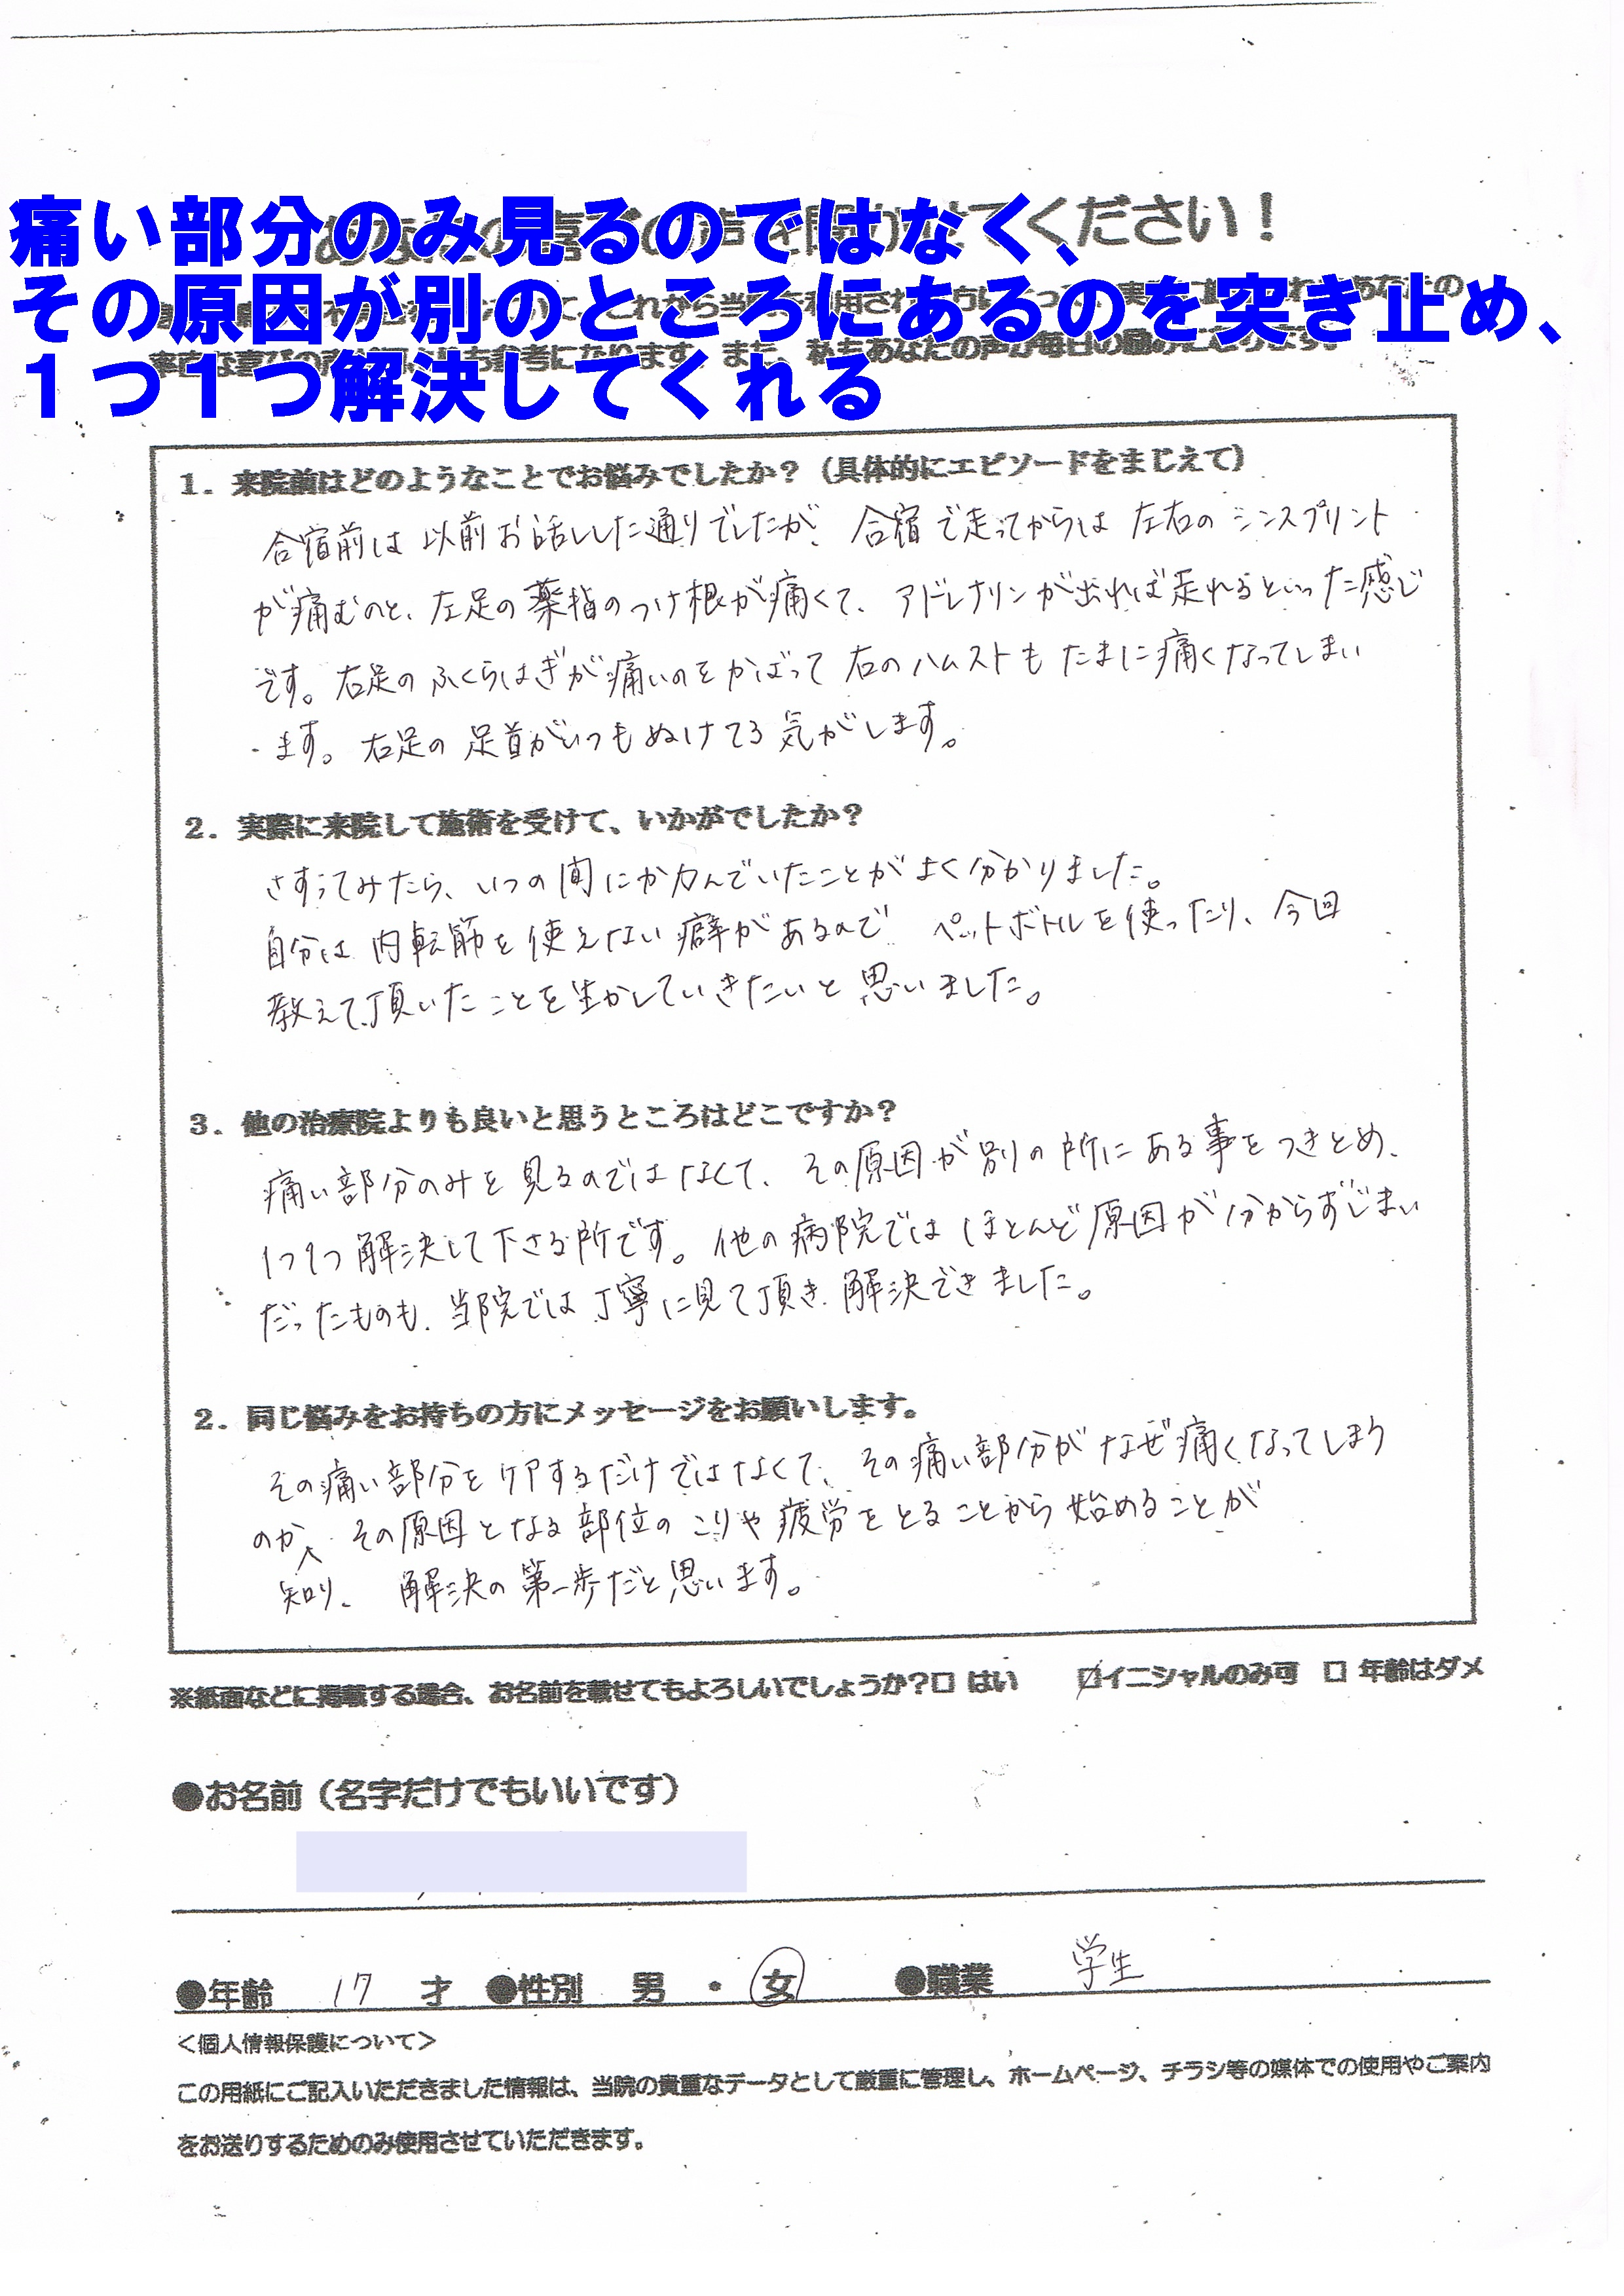 痛い部分のみ見るのではなく、
その原因が別のところにあるのを突き止め、
１つ１つ解決してくれる
ください！
1．来院前はどのようなことでお悩みでしたか？（具体的にエピソードをまじえて）
合宿前は以前お話しした通りでしたが、合宿で走ってからは左右のシンスプリント
が痛むのと、左足の薬指のつけ根が痛くて、アドレナリンが出れば走れるといった感じ
です。右足のふくらはぎが痛いのをかばって右のハムストもたまに痛くなってしまい
ます。右足の足首がいつもぬけてる気がします。
2．実際に来院して施術を受けて、いかがでしたか？
さすってみたら、いつの間にか力んでいたことがよく分かりました。
自分は内転筋を使えない癖があるので ペットボトルを使ったり、今回
教えて頂いたことを生かしていきたいと思いました。
3．他の治療院よりも良いと思うところはどこですか？
痛い部分のみを見るのではなくて、その原因が別の所にある事をつきとめ、
1つ1つ解決して下さる所です。他の病院ではほとんど原因が分からずじまい
だったものも、当院では丁寧に見て頂き、解決できました。
2．同じ悩みをお持ちの方にメッセージをお願いします。
その痛い部分をケアするだけではなくて、その痛い部分がなぜ痛くなってしまう
のか その原因となる部位のこりや疲労をとることから始めることが
知り、 解決の第一歩だと思います。
※紙面などに掲載する場合、お名前を載せてもよろしいでしょうか？□ はい ☑イニシャルのみ可 □ 年齢はダメ
●お名前（名字だけでもいいです）
●年齢 17 才 ●性別 男 ・ 女 ●職業 学生
＜個人情報保護について＞
この用紙にご記入いただきました情報は、当院の貴重なデータとして厳重に管理し、ホームページ、チラシ等の媒体での使用やご案内
をお送りするためのみ使用させていただきます。